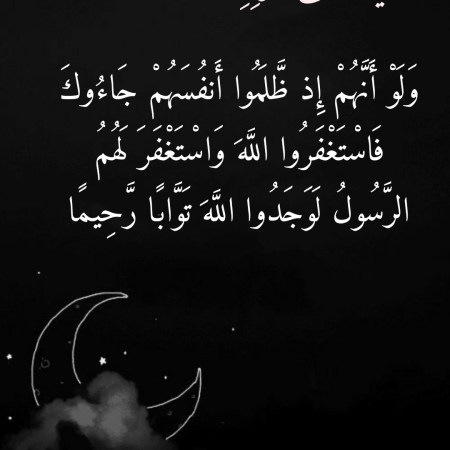 وَلَوْ أَنَّهُمْ إِذ ظَّلَمُوا أَنفُسَهُمْ جَاءُوكَ
فَاسْتَغْفَرُوا اللَّهَ وَاسْتَغْفَرَ لَهُمُ
الرَّسُولُ لَوَجَدُوا اللَّهَ تَوَّابًا رَّحِيمًا